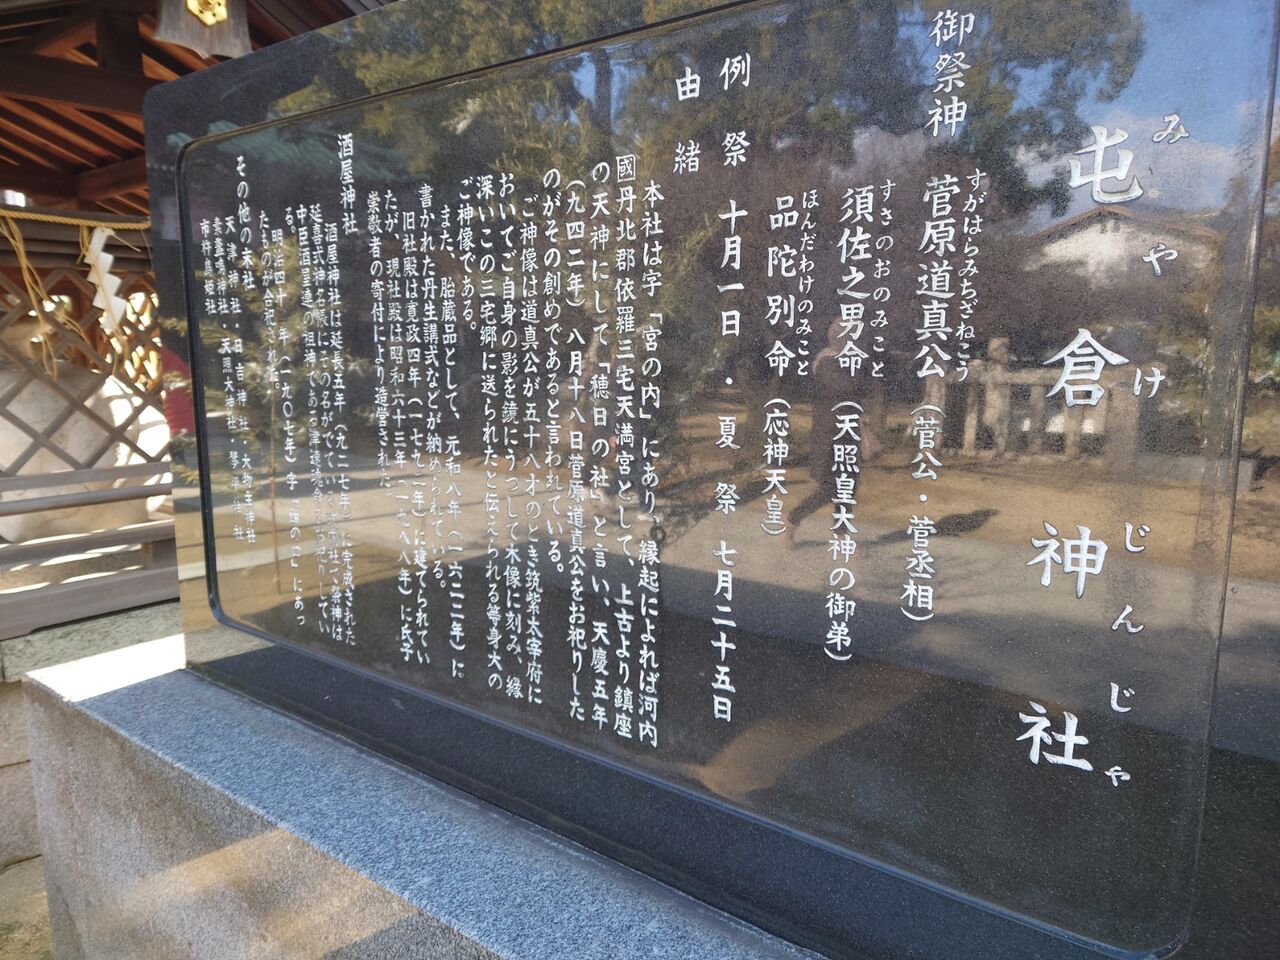 屯倉神社
みやけじんじゃ
御祭神
菅原道真公(菅公・菅丞相)
すがはらみちざねこう
須佐之男命(天照皇大神の御弟)
すさのおのみこと
品陀別命(応神天皇)
ほんだわけのみこと
例祭 十月一日・夏祭 七月二十五日
由緒
本社は字「宮の内」にあり、縁起によれば河内
國丹北郡依羅三宅天満宮として、上古より鎮座
の天神にして「穂日の社」と言い、天慶五年
(九四二年)八月十八日菅原道真公をお祀りした
のがその創めであると言われている。
ご神像は道真公が五十八才のとき筑紫太宰府に
おいてご自身の影を鏡にうつして木像に刻み、縁
深いこの三宅郷に送られたと伝えられる等身大の
ご神像である。
また、胎蔵品として、元和八年(一六二二年)に
書かれた丹生講式などが納められている。
旧社殿は寛政四年(一七九二年)に建てられてい
たが、現社殿は昭和六十三年(一九八八年)に氏子
崇敬者の寄付により造営された。
酒屋神社
酒屋神社は延長五年(九二七年)に完成された
延喜式神名帳にその名がでている神社で祭神は
中臣酒屋連の祖神である津速魂命をお祀りしてい
る。
明治四十年(一九〇七年)字「」にあっ
たものが合祀された。
その他の末社
天津神社・日吉神社・大物主神社
素盞嗚神社・天照大神社・琴平神社
市杵島姫社